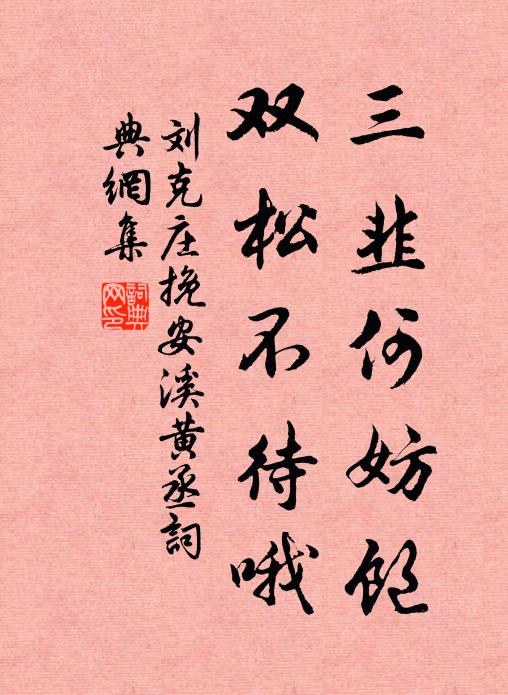 三韭何妨饱
双松不待哦
刘克庄挽安溪黄丞詞
典網集
詞典
网印